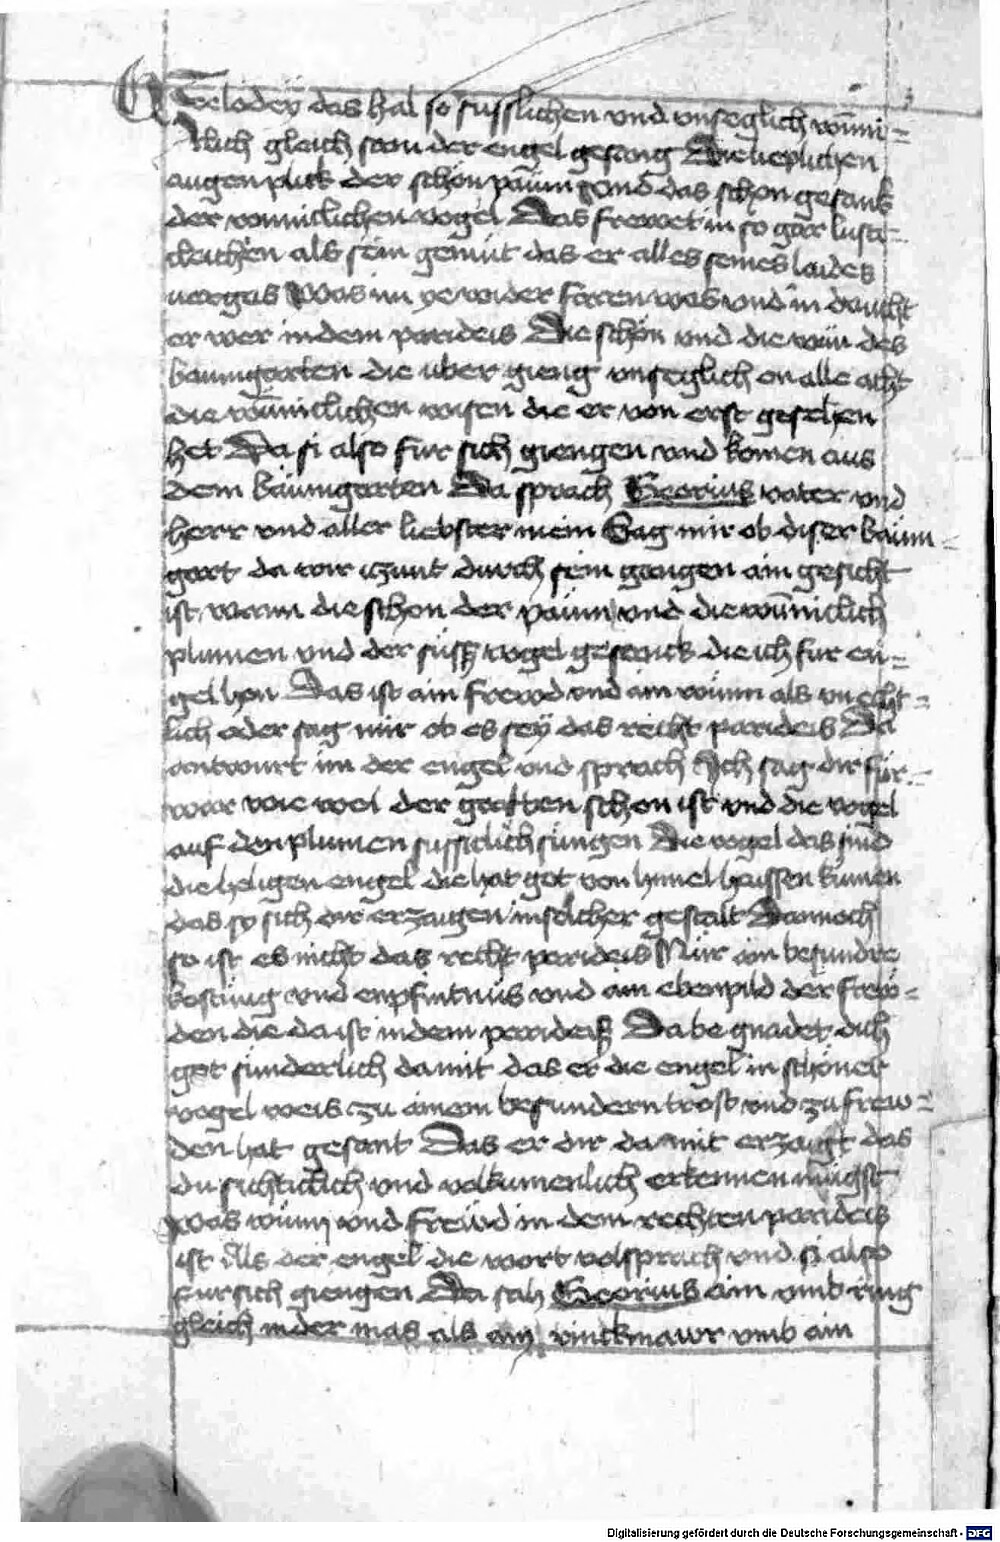 Melodey das hal so susslichen vnd vnseglich wūni=
klich gleich sam der engel gesang Die lieplichen
augenplick der schön päum gend das schon gesank
der wunniclichen vogel Das frewet in so gar lust=
cleichen als sein gemüt das er alles seines laides
vergas Was im ye wider faren was vnd in daucht
er wer in dem parideis Die schön vnd die wun des
bäumgarten die uber gieng vnseglich on alle acht
die wūniclichen wisen die er von erst gesehen
het Da si also fur sich giengen vnd komen aus
dem bäumgarten Da sprach Georius vater vnd
herr vnd aller liebster mein Sag mir ob diser bäum=
gart da wir iczunt durch sein gangen ain gesicht
ist wann die schon der päum vnd die wūniclich
plumen vnd der süss vogel gesanck die ich fur en=
gel han Das ist ain frewd vnd ain wünn als vnecht=
lich oder sag mir ob es sey das recht parideis Da
antwurt im der engel vnd sprach Ich sag dir für=
war wie wol der gartten schon ist vnd die vogel
auf den plumen sussiclich singen Die vogel das sind
die heligen engel die hat got von himel haissen kumen
das sy sich dir erzaigen in solicher gestalt Dannoch
so ist es nicht das recht parideis Nür ain besundre
kostung vnd enpfintnus vnd ain ebenpild der frew=
den die da ist in dem parideiß Da be gnadet dich
got sunderlich damit das er die engel in schöner
vogel weis zu ainem besundern trost vnd zu frew=
den hat gesant Das er dir da mit erzaigt das
du sichticlich vnd volkumenlich erkennen mügst
was wünn vnd frewd in dem rechten parideis
ist Als der engel die wort volsprach vnd si also
fur sich giengen Da sah Georius ain vmb ring
gleich in der mas als ain rinckmawr vmb ain
Digitalisierung gefördert durch die Deutsche Forschungsgemeinschaft - DFG